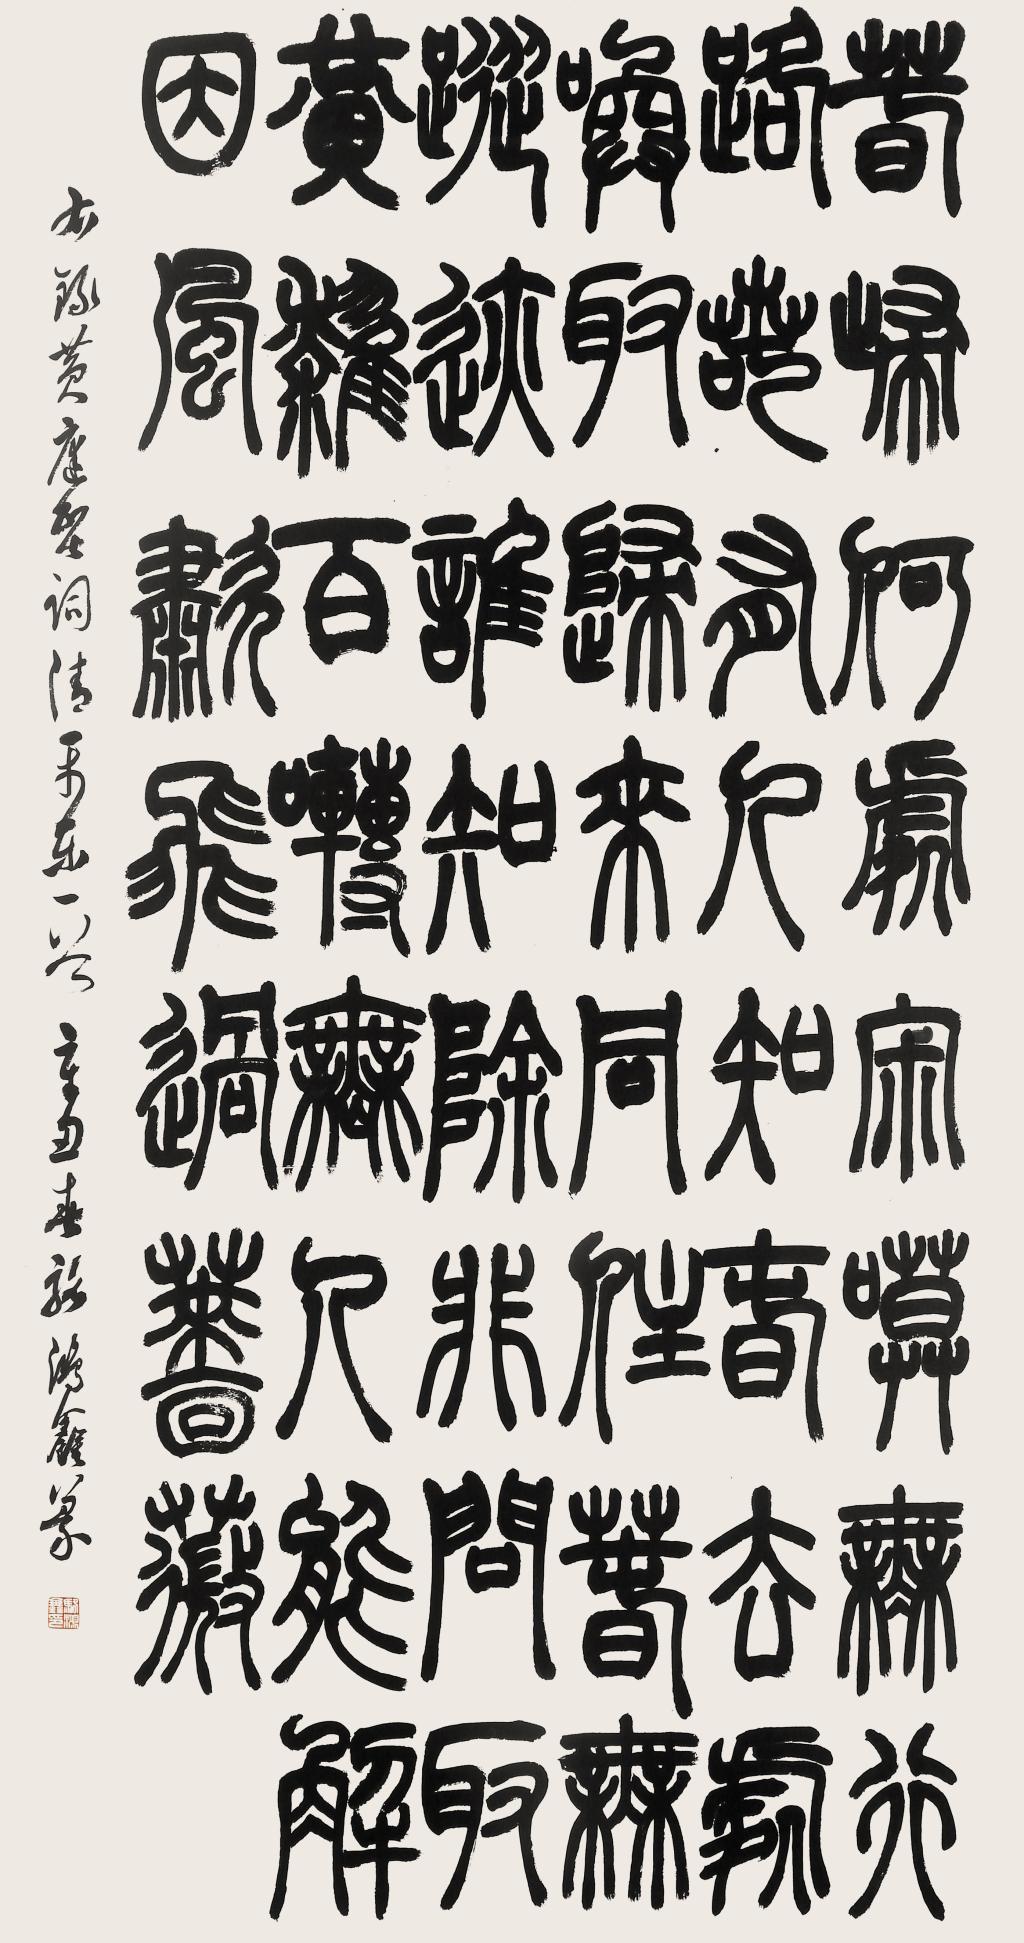 春歸何處寂嗼無行
路若有人知春去處
喚取歸來同往春無
蹤迹誰知除非問取
黃鸝百囀無人能解
因風歗飛過薔薇
右錄黃庭堅詞清平樂一首 辛丑春駱鴻鑫篆